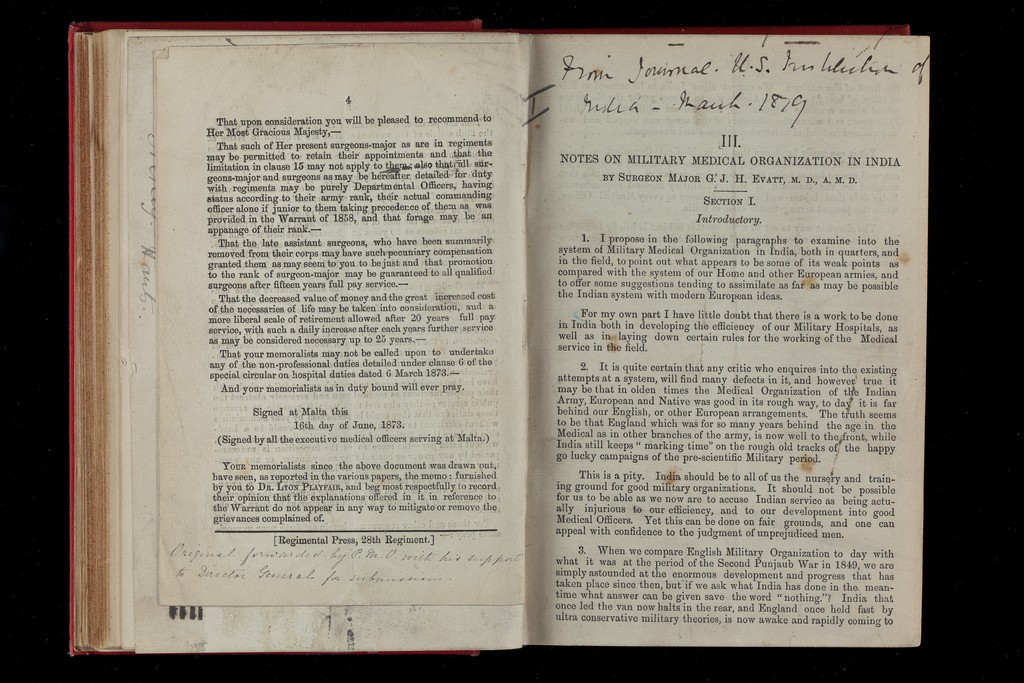 4
That upon consideration you will be pleased to recommend to
Her Most Gracious Majesty,—
That such of Her present surgeons-major as are in regiments
may be permitted to retain their appointments and that the
limitation in clause 15 may not apply to them; also that all sur-
geons-major and surgeons as may be hereafter detailed for duty
with regiments may be purely Departmental Officers, having
status according to their army rank, their actual commanding
officer alone if junior to them taking precedence of them as was
provided in the Warrant of 1858, and that forage may be an
appanage of their rank.—
That the late assistant surgeons, who have been summarily
removed from their corps may have such pecuniary compensation
granted them as may seem to you to be just and that promotion
to the rank of surgeon-major may be guaranteed to all qualified
surgeons after fifteen years full pay service.—
That the decreased value of money and the great increased cost
of the necessaries of life may be taken into consideration, and a
more liberal scale of retirement allowed after 20 years full pay
service, with such a daily increase after each years further service
as may be considered necessary up to 25 years.—
That your memoralists may not be called upon to undertake
any of the non-professional duties detailed under clause 6 of the
special circular on hospital duties dated 6 March 1873.—
And your memorialists as in duty bound will ever pray.
Signed at Malta this
16th day of June, 1873.
(Signed by all the executive medical officers serving at Malta.)
YOUR memorialists since the above document was drawn out,
have seen, as reported in the various papers, the memo: furnished
by you to DR. LYON PLAYFAIR, and beg most respectfully to record
their opinion that the explanations offered in it in reference to
the Warrant do not appear in any way to mitigate or remove the
grievances complained of.
[Regimental Press, 28th Regiment.]
Original forwarded by P.M.O. with his support
to Director General for submission.
From Journal. U.S. Institution of
India - March. 1879
I
III.
NOTES ON MILITARY MEDICAL ORGANIZATION IN INDIA
BY SURGEON MAJOR G. J. H. EVATT, M. D., A. M. D.
SECTION I.
Introductory.
1. I propose in the following paragraphs to examine into the
system of Military Medical Organization in India, both in quarters, and
in the field, to point out what appears to be some of its weak points as
compared with the system of our Home and other European armies, and
to offer some suggestions tending to assimilate as far as may be possible
the Indian system with modern European ideas.
For my own part I have little doubt that there is a work to be done
in India both in developing the efficiency of our Military Hospitals, as
well as in laying down certain rules for the working of the Medical
service in the field.
2. It is quite certain that any critic who enquires into the existing
attempts at a system, will find many defects in it, and however true it
may be that in olden times the Medical Organization of the Indian
Army, European and Native was good in its rough way, to day it is far
behind our English, or other European arrangements. The truth seems
to be that England which was for so many years behind the age in the
Medical as in other branches of the army, is now well to the front, while
India still keeps " marking time" on the rough old tracks of the happy
go lucky campaigns of the pre-scientific Military period.
This is a pity. India should be to all of us the nursery and train-
ing ground for good military organizations. It should not be possible
for us to be able as we now are to accuse Indian service as being actu-
ally injurious to our efficiency, and to our development into good
Medical Officers. Yet this can be done on fair grounds, and one can
appeal with confidence to the judgment of unprejudiced men.
3. When we compare English Military Organization to day with
what it was at the period of the Second Punjaub War in 1849, we are
simply astounded at the enormous development and progress that has
taken place since then, but if we ask what India has done in the mean-
time what answer can be given save the word "nothing."? India that
once led the van now halts in the rear, and England once held fast by
ultra conservative military theories, is now awake and rapidly coming to